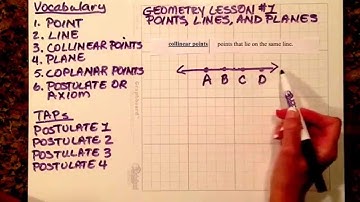 Vocabulary
1. POINT
2. LINE
3. COLLINEAR POINTS
4. PLANE
5. COPLANAR POINTS
6. POSTULATE OR
AXIOM
TAPs
POSTULATE 1
POSTULATE 2
POSTULATE 3
POSTULATE 4
GEOMETRY LESSON #1
POINTS, LINES, AND PLANES
collinear points points that lie on the same line.
A B C D